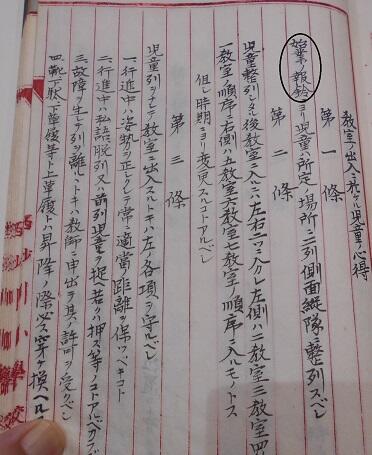 教室ノ出入ニ於ケル児童ノ心得
第一條
始業ノ報鈴ニヨリ児童ハ所定ノ場所ニ二列側面縦隊ニ整列スベシ
第二條
児童整列シタル後教室ニ入ルニハ左右二ツニ分レ左側ハ二教室三教室四
教室ノ順序ニ右側ハ五教室六教室七教室ノ順序ニ入ルモノトス
但シ時期ニヨリ変更スルコトアルベシ
第三條
児童列ヲナシテ教室ニ出入スルトキハ左ノ各項ヲ守ルベシ
一、行進中ハ姿勢ヲ正シクシテ常ニ適當ノ距離ヲ保ツベキコト
二、行進中ハ私語脱列又ハ前列児童ヲ捉ヘ若クハ押ス等ノコトアルベカラズ
三、故障ヲ生シテ列ヲ離ルヽトキハ教師ニ申出テ其ノ許可ヲ受クベシ
四、靴下駄、下草履等ト上草履トハ昇降ノ際必ス穿キ換ヘル